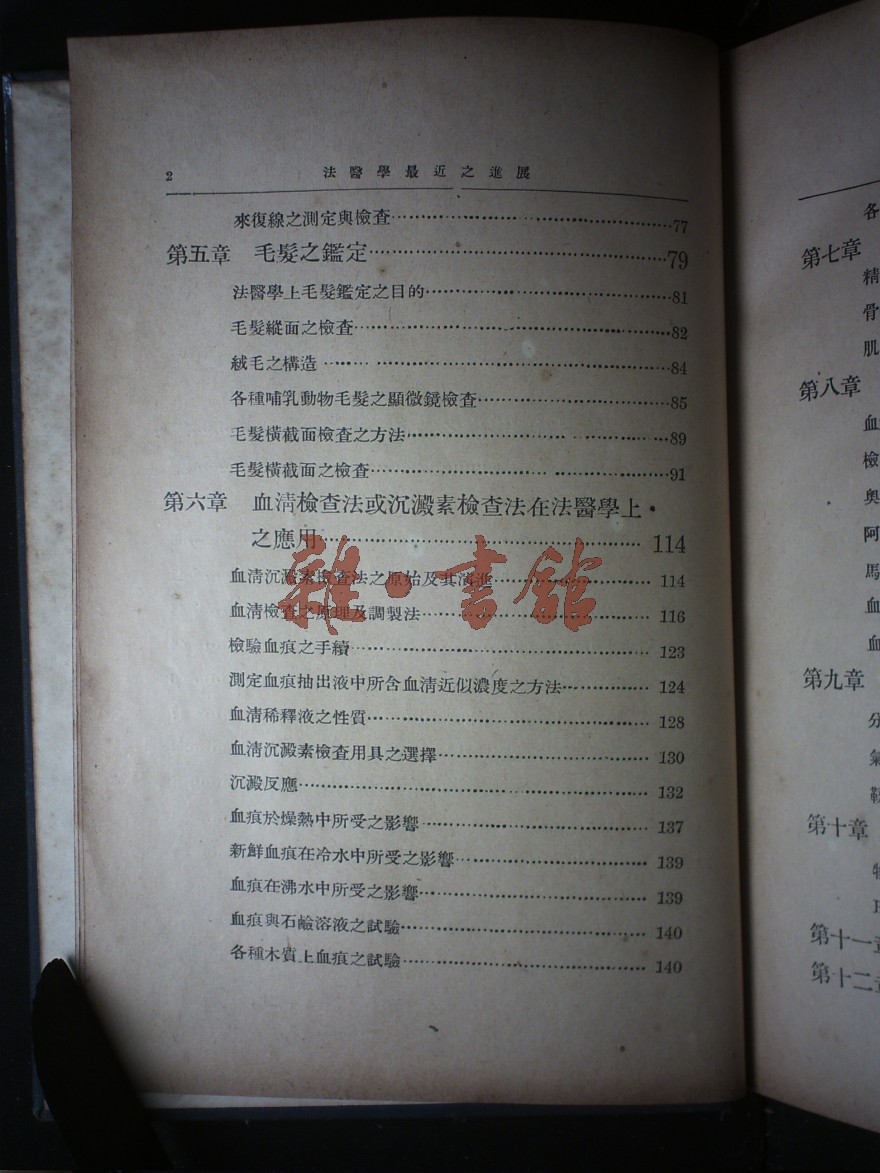 2 法醫學最近之進展
來復線之測定與檢查 77
第五章 毛髮之鑑定 79
法醫學上毛髮鑑定之目的 81
毛髮縱面之檢查 82
絨毛之構造 84
各種哺乳動物毛髮之顯微鏡檢查 85
毛髮橫截面檢查之方法 89
毛髮橫截面之檢查 91
第六章 血淸檢查法或沉澱素檢查法在法醫學上
之應用 114
血淸沉澱素檢查法之原始及其演進 114
血淸檢查之原理及調製法 116
檢驗血痕之手續 123
測定血痕抽出液中所含血淸近似濃度之方法 124
血淸稀釋液之性質 128
血淸沉澱素檢查用具之選擇 130
沉澱反應 132
血痕於燥熱中所受之影響 137
新鮮血痕在冷水中所受之影響 139
血痕在沸水中所受之影響 139
血痕與石鹼溶液之試驗 140
各種木質上血痕之試驗 140
雜·書館
各
第七章
精
骨
肌
第八章
血
檢
奧
阿
馬
血
血
第九章
分
氣
第十章
第十一章
第十二章